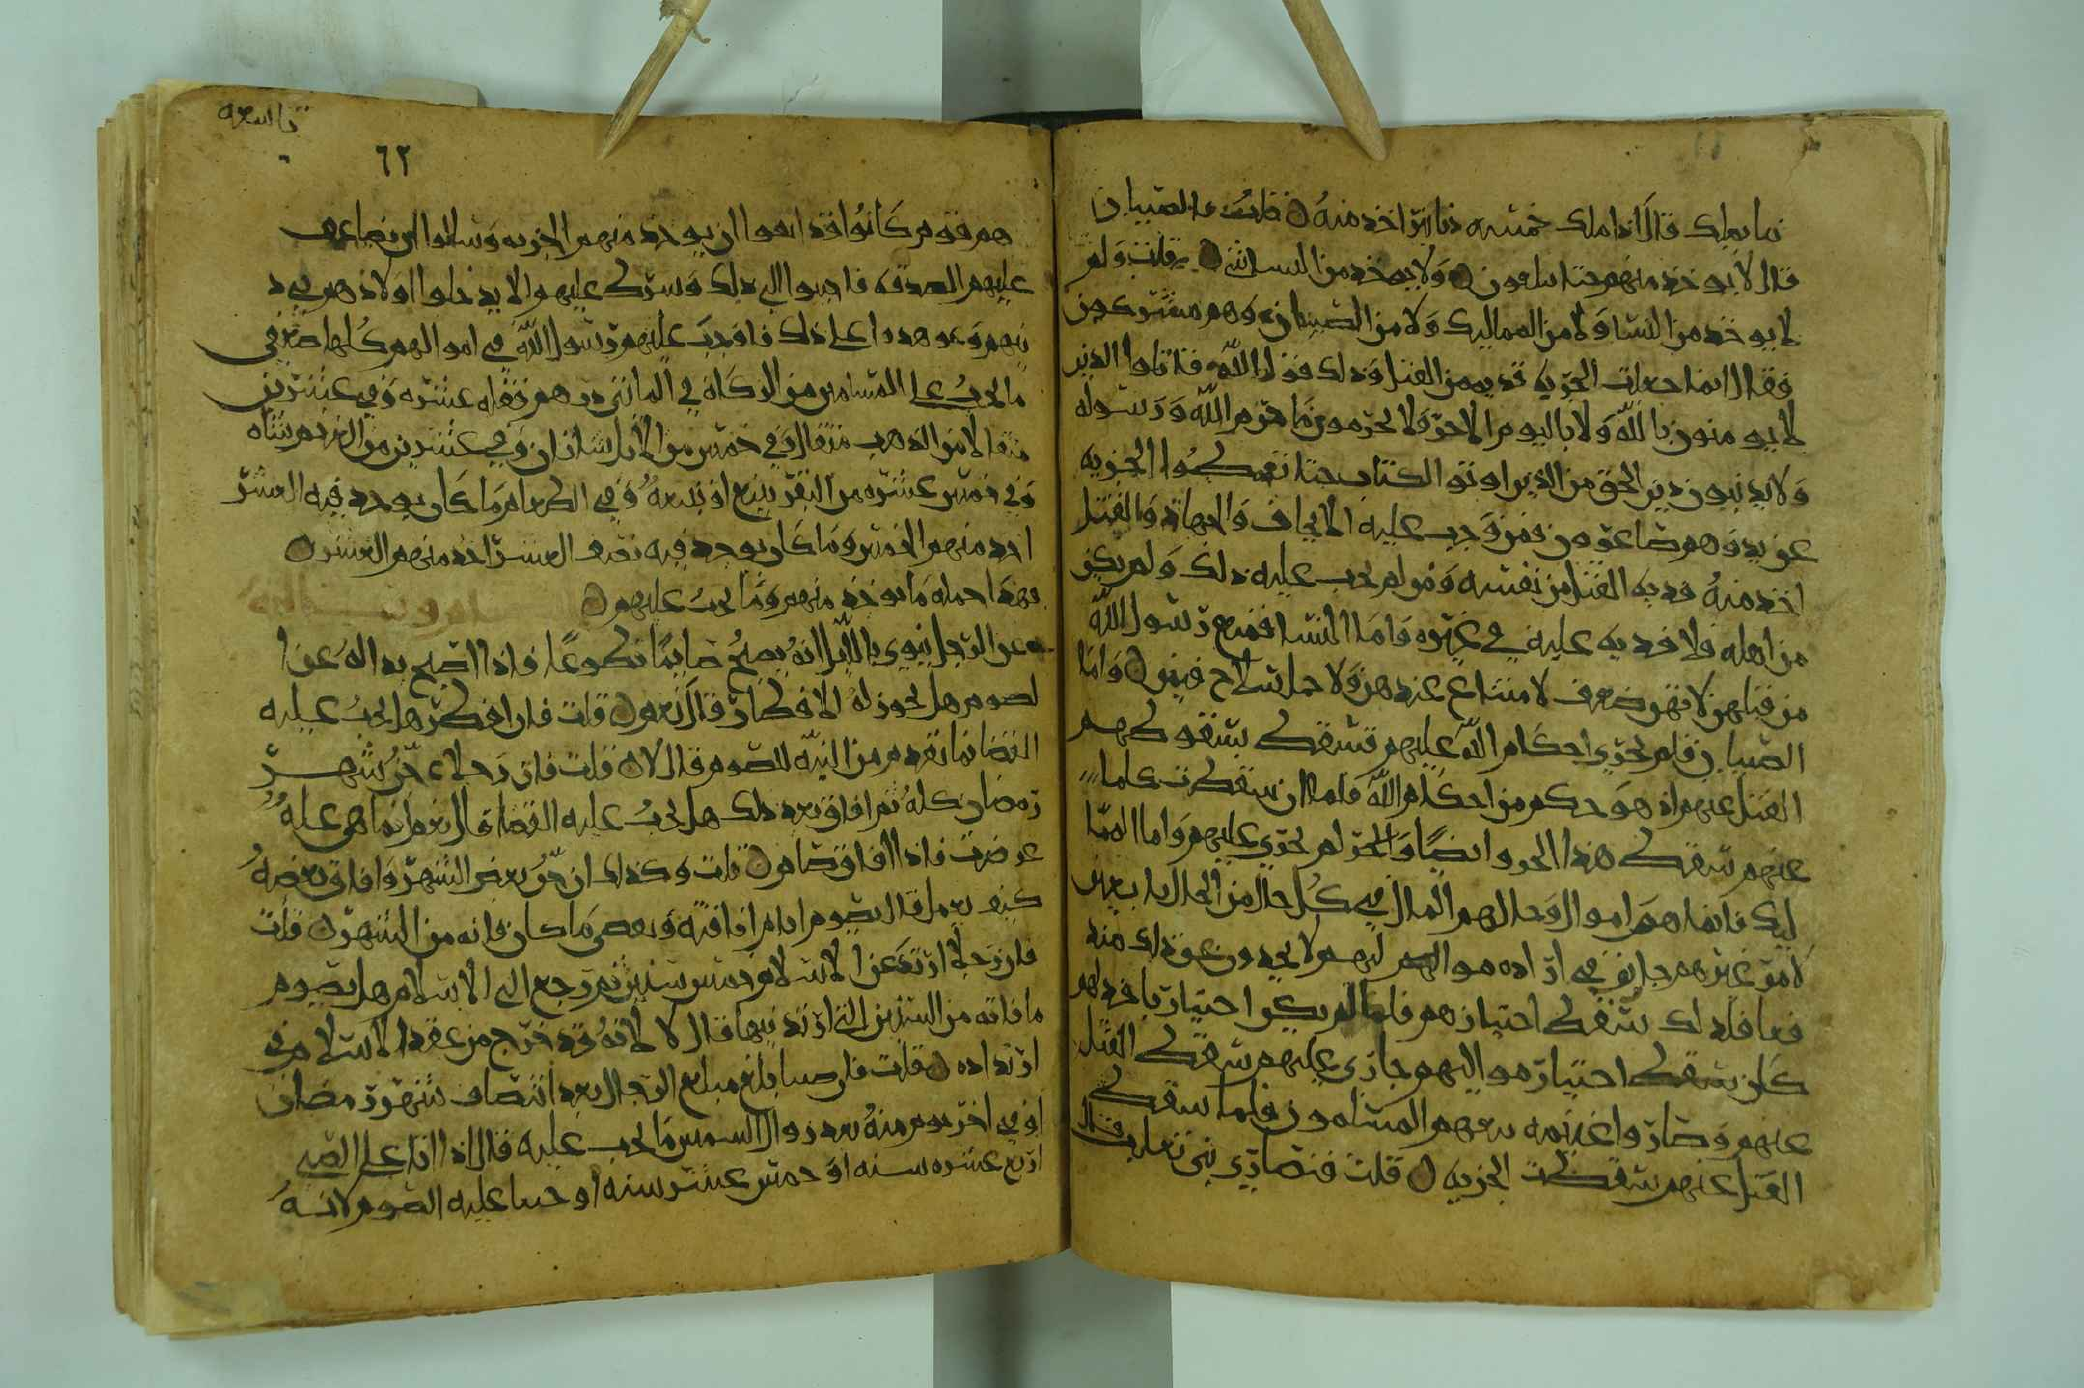 فيما يملك قال اذا ملك خمسه دنانير اخذ منه قلت فالصبيان
قال لا يوخذ منهم حتا يبلغون ولا يوخذ من النسا شي قلت ولم
لا يوخذ من النسا ولا من المماليك ولا من الصبيان وهم مشركون
فقال انما جعلت الجزيه فديه من القتل وذلك قول الله قاتلوا الذين
لا يومنون بالله ولا باليوم الاخر ولا يحرمون ما حرم الله ورسوله
ولا يدينون دين الحق من الذين اوتو الكتاب حتا يعطوا الجزيه
عن يد وهم صاغرون فمن وجب عليه الايجاف والجهاد والقتل
اخذ منه فديه القتل من نفسه ومن لم يجب عليه ذلك ولم يكن
من اهله فلا فديه عليه في غيره فاما النسا فمنع رسول الله
من قتلهن لانهن ضعف لا امتناع عندهن ولا حمل سلاح فيهن واما
الصبيان فلم تجري احكام الله عليهم فسقط بسقوطهم
القتل عنهم اذ هو حكم من احكام الله فلما ان سقطت كلما
عنهم سقط هذا الحد ايضا والجزا لم تجري عليهم واما المما
ليك فانما هم اموال وحالهم المال في كل حال من الحال لا يعين
لامو غيرهم جايز في ارادة مواليهم ليهم لا يجدون عن ذلك منه
فعا فلذلك سقط اختيارهم فلما لم يكن اختيار ياخذ لهم
كان يسقط اختيار مواليهم جازي عليهم سقط القتل
عنهم وصاروا غنيمه يبيعهم المسلمون فلما سقط
القتل عنهم سقطت الجزيه قلت فنصاري بني تغلب قال
تاسعه
٦٢
هم قوم كانوا قد انفوا ان يوخذ منهم الجزيه وسالوا ان يضاعف
عليهم الصدقه فاجيبوا الى ذلك وشرط عليهم الا يدخلوا اولادهم في د
ينهم وعوهدوا على ذلك فاوجب عليهم رسول الله في اموالهم كلها ضعفي
ما يجب على المسلمين من الزكاة في المائتي درهم عشره وفي عشرين
مثقالا من الذهب مثقال وفي خمس من الابل شاتان وفي عشرين من الغنم شاه
وفي خمس عشره من البقر تبيع او تبيعه وفي الطعام ما كان يوخذ فيه العشر
اخذ منهم الخمس وما كان يوخذ فيه نصف العشر اخذ منهم العشر
فهذا جمله ما يوخذ منهم وما يجب عليهم
وعن الرجل ينوي بالليل انه يصبح صايما تطوعا فاذا اصبح بدا له عن ا
لصوم هل يجوز له الافطار قال نعم قلت فان افطر هل يجب عليه
القضا لما تقدم من النيه للصوم قال لا قلت فان رجلا جن شهر
رمضان كله ثم افاق بعد ذلك هل يجب عليه القضا قال نعم انما هي عله
عرضت فاذا افاق صام قلت وكذلك ان جن بعض الشهر وافاق بعضه
كيف يعمل قال يصوم ايام افاقته ويقضي ما كان فاته من الشهر قلت
فان رجلا ارتد عن الاسلام خمس سنين ثم رجع الى الاسلام هل يصوم
ما فاته من السنين التي ارتد فيها قال لا لانه قد خرج من عقد الاسلام في
ارتداده قلت فان صبيا بلغ مبلغ الرجال بعد انتصاف شهر رمضان
او في اخر يوم منه بعد زوال الشمس ما يجب عليه قال اذا اتا على الصبي
اربع عشره سنه او خمس عشر سنه اوجبنا عليه الصوم لانه